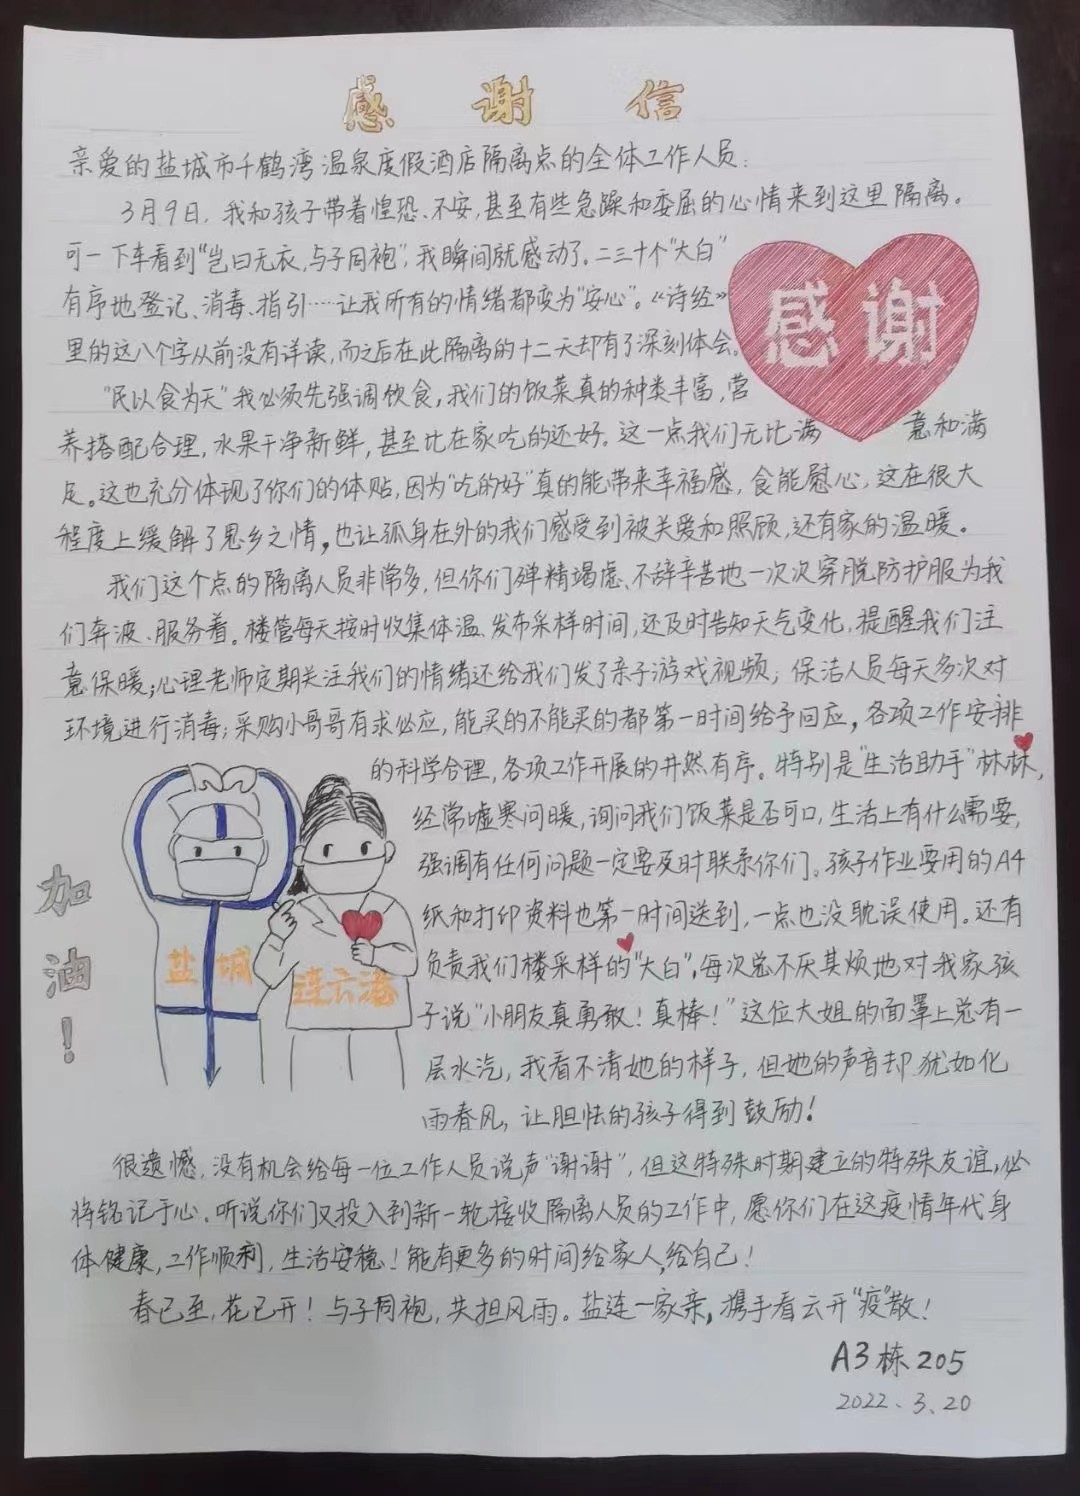 感谢信
亲爱的盐城市千鹤湾温泉度假酒店隔离点的全体工作人员：
3月9日，我和孩子带着惶恐、不安，甚至有些急躁和委屈的心情来到这里隔离。
可一下车看到“岂曰无衣，与子同袍”，我瞬间就感动了。二三十个“大白”
有序地登记、消毒、指引……让我所有的情绪都变为“安心”。《诗经》
里的这八个字从前没有详读，而之后在此隔离的十二天却有了深刻体会。
感谢
“民以食为天”我必须先强调饮食，我们的饭菜真的种类丰富，营
养搭配合理，水果干净新鲜，甚至比在家吃的还好。这一点我们无比满意和满
足。这也充分体现了你们的体贴，因为“吃的好”真的能带来幸福感，食能慰心，这在很大
程度上缓解了思乡之情，也让孤身在外的我们感受到被关爱和照顾，还有家的温暖。
我们这个点的隔离人员非常多，但你们殚精竭虑、不辞辛苦地一次次穿脱防护服为我
们奔波、服务着。楼管每天按时收集体温、发布采样时间，还及时告知天气变化，提醒我们注
意保暖；心理老师定期关注我们的情绪还给我们发了亲子游戏视频；保洁人员每天多次对
环境进行消毒；采购小哥哥有求必应，能买的不能买的都第一时间给予回应，各项工作安排
的科学合理，各项工作开展的井然有序。特别是“生活助手”林林，
经常嘘寒问暖，询问我们饭菜是否可口，生活上有什么需要，
强调有任何问题一定要及时联系你们。孩子作业要用的A4
纸和打印资料也第一时间送到，一点也没耽误使用。还有
负责我们楼采样的“大白”，每次总不厌其烦地对我家孩
子说“小朋友真勇敢！真棒！”这位大姐的面罩上总有一
层水汽，我看不清她的样子，但她的声音却犹如化
雨春风，让胆怯的孩子得到鼓励！
加油！
盐城
连云港
很遗憾，没有机会给每一位工作人员说声“谢谢”，但这特殊时期建立的特殊友谊，必
将铭记于心。听说你们又投入到新一轮接收隔离人员的工作中，愿你们在这疫情年代身
体健康，工作顺利，生活安稳！能有更多的时间给家人，给自己！
春已至，花已开！与子同袍，共担风雨。盐连一家亲，携手看云开“疫”散！
A3栋205
2022、3、20